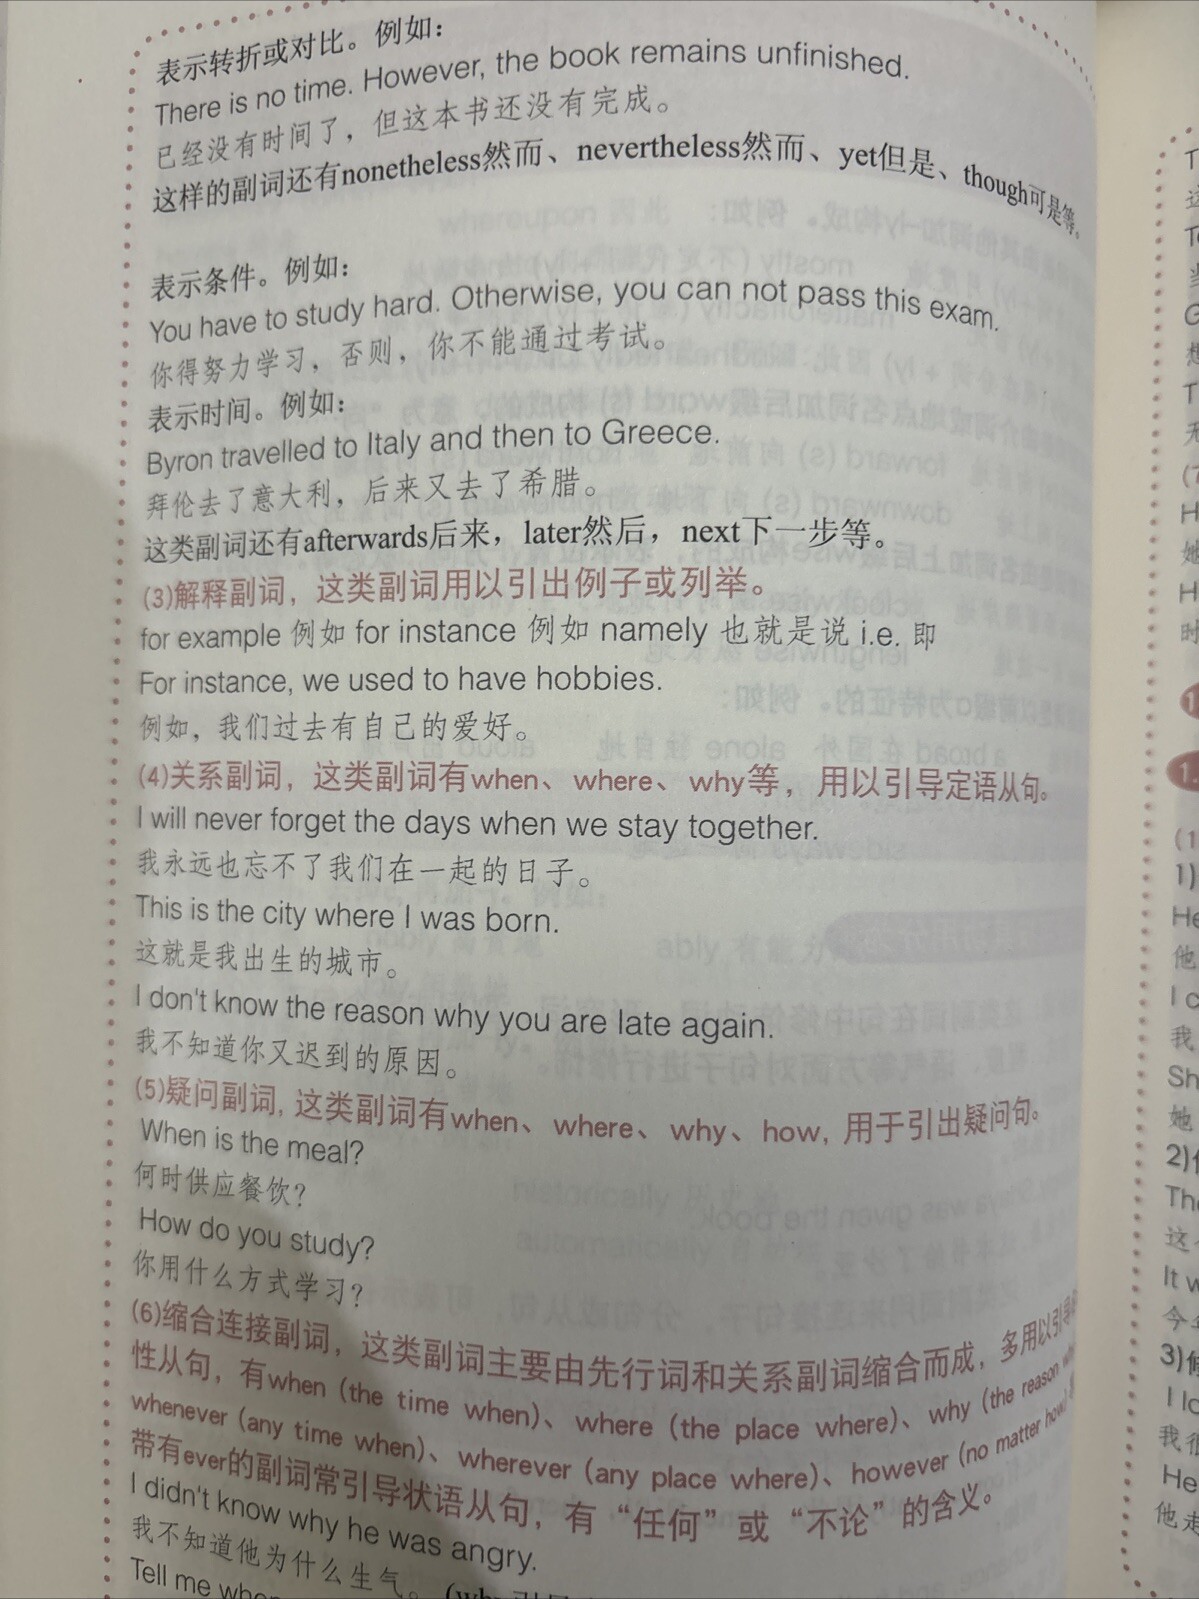 表示转折或对比。例如：
There is no time. However, the book remains unfinished.
已经没有时间了，但这本书还没有完成。
这样的副词还有nonetheless然而、nevertheless然而、yet但是、though可是等。
表示条件。例如：
You have to study hard. Otherwise, you can not pass this exam.
你得努力学习，否则，你不能通过考试。
表示时间。例如：
Byron travelled to Italy and then to Greece.
拜伦去了意大利，后来又去了希腊。
这类副词还有afterwards后来，later然后，next下一步等。
(3)解释副词，这类副词用以引出例子或列举。
for example 例如 for instance 例如 namely 也就是说 i.e. 即
For instance, we used to have hobbies.
例如，我们过去有自己的爱好。
(4)关系副词，这类副词有when、where、why等，用以引导定语从句。
I will never forget the days when we stay together.
我永远也忘不了我们在一起的日子。
This is the city where I was born.
这就是我出生的城市。
I don't know the reason why you are late again.
我不知道你又迟到的原因。
(5)疑问副词, 这类副词有when、where、why、how, 用于引出疑问句。
When is the meal?
何时供应餐饮?
How do you study?
你用什么方式学习?
(6)缩合连接副词，这类副词主要由先行词和关系副词缩合而成，多用以引导
性从句，有when (the time when)、where (the place where)、why (the reason
whenever (any time when)、wherever (any place where)、however (no matter how)
带有ever的副词常引导状语从句，有“任何”或“不论”的含义。
I didn't know why he was angry.
我不知道他为什么生气。
Tell me